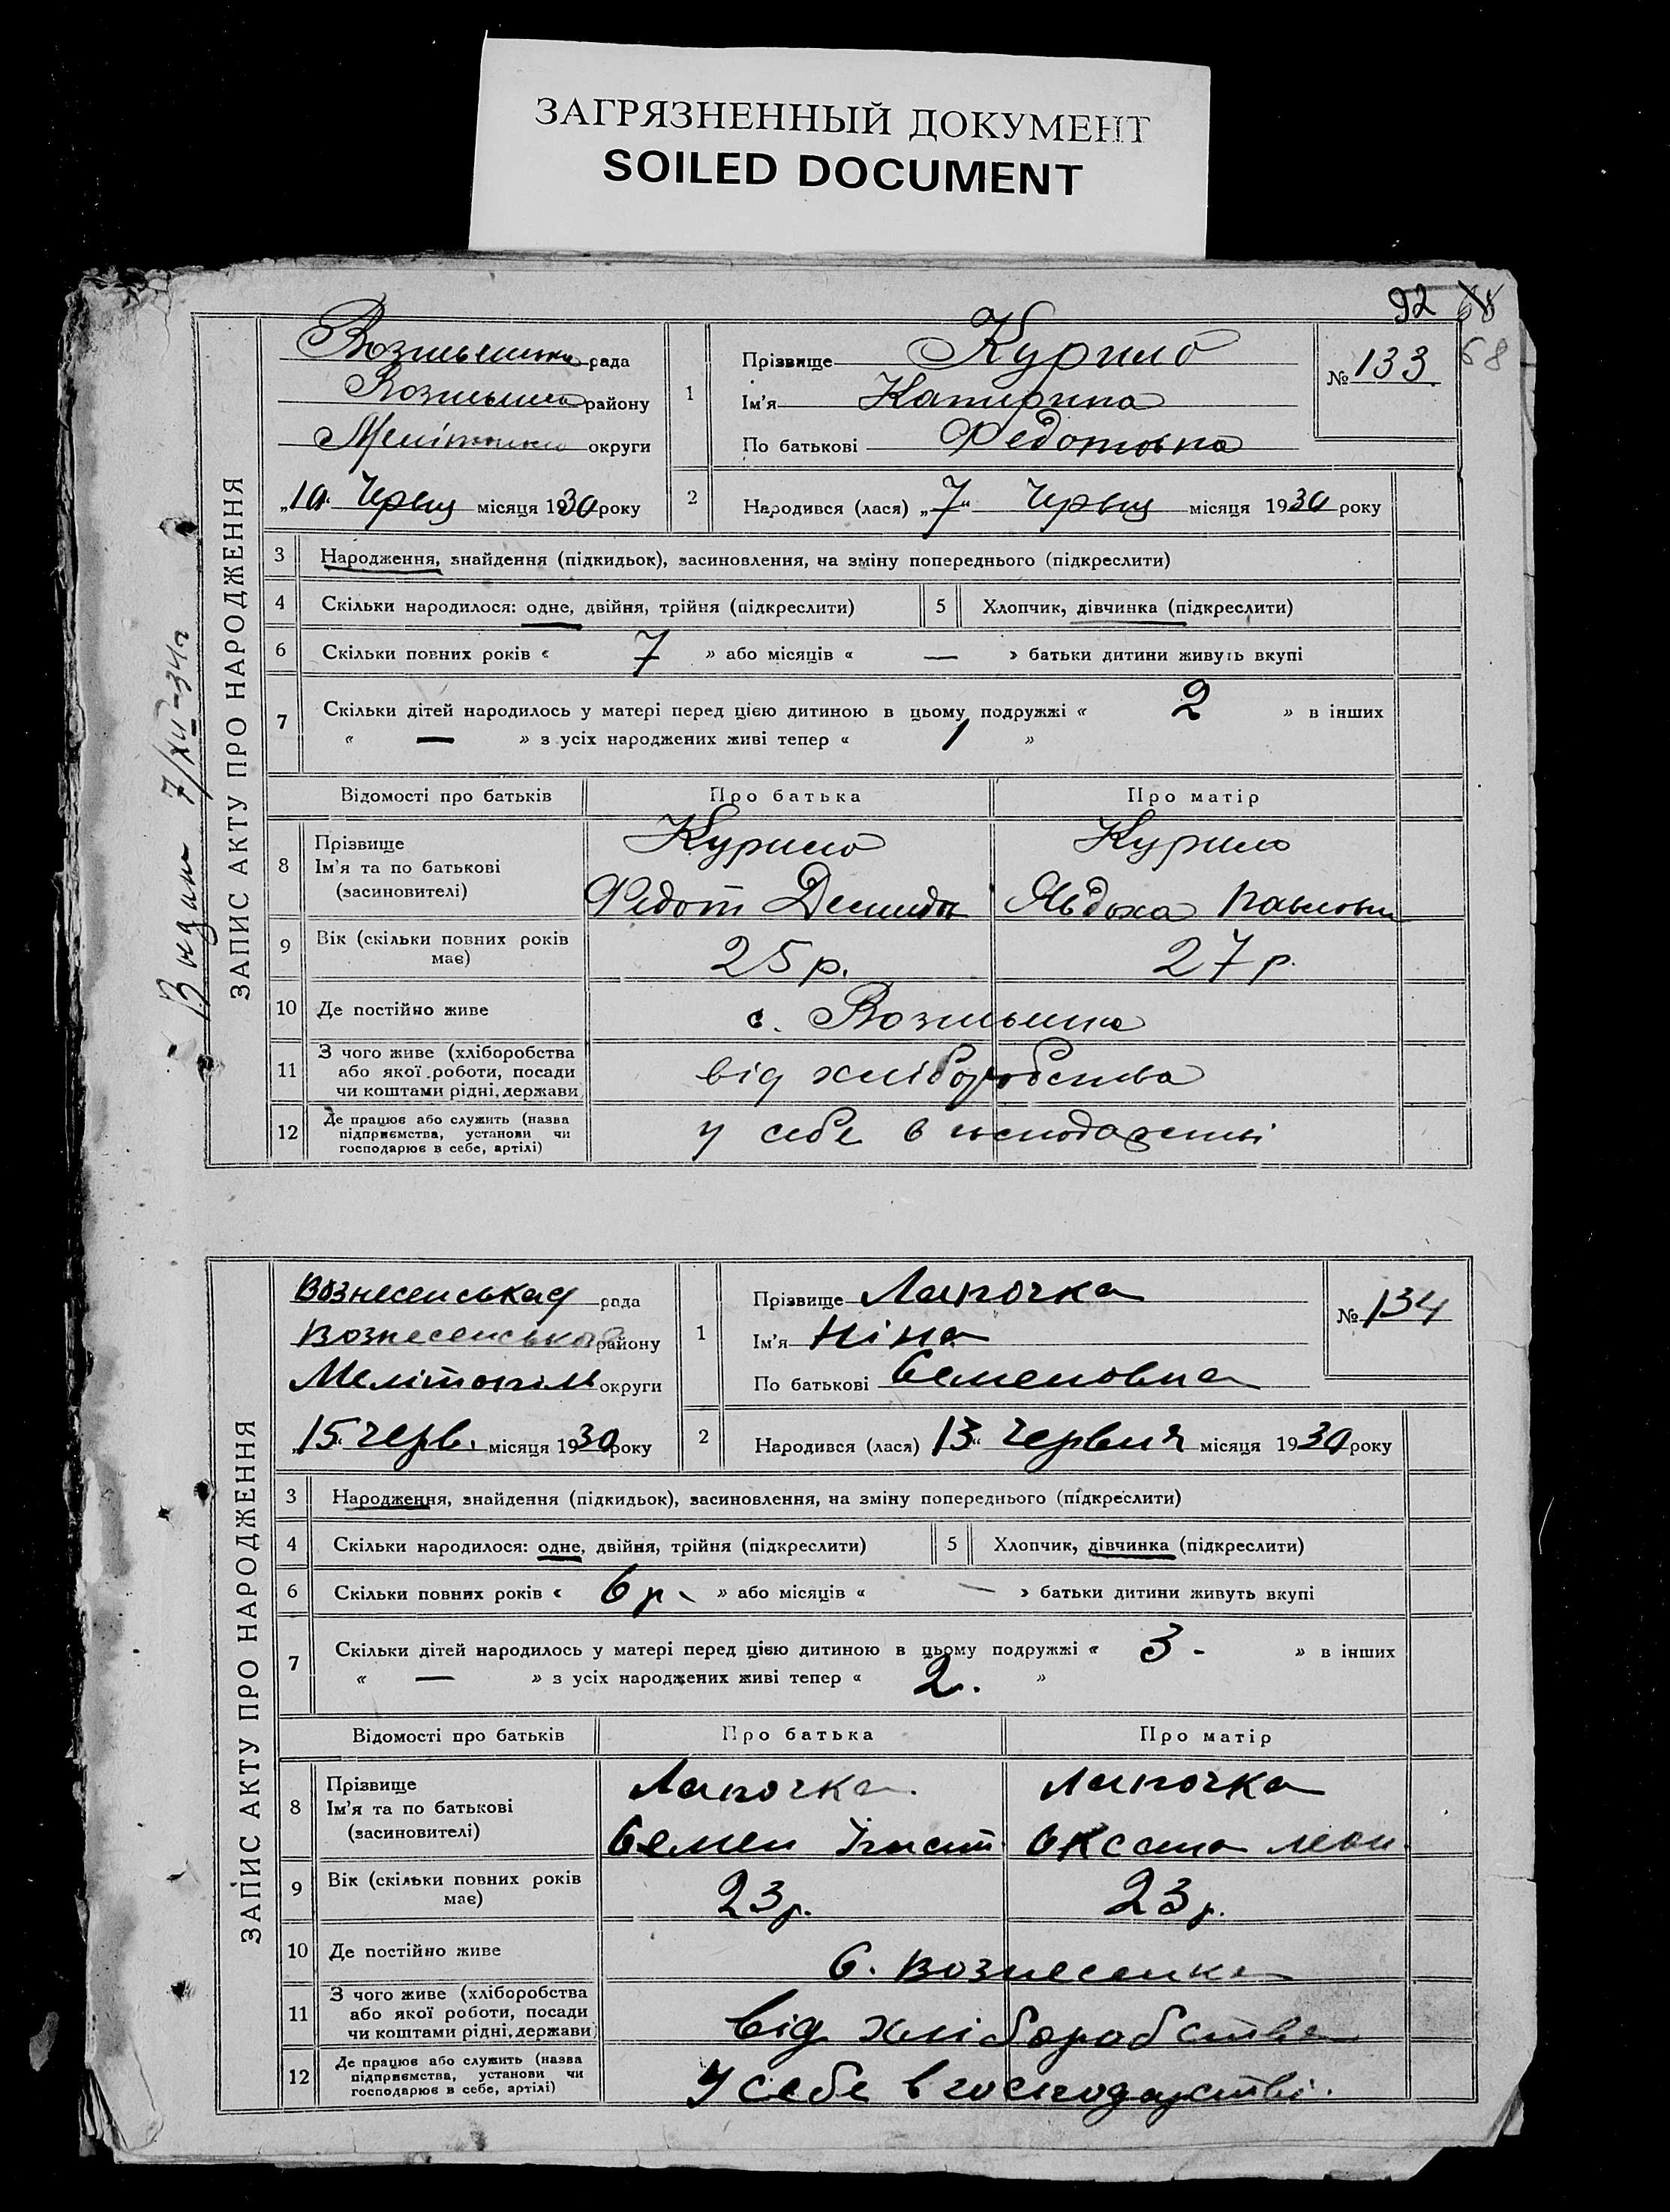 ЗАГРЯЗНЕННЫЙ ДОКУМЕНТ
SOILED DOCUMENT
92
68
ЗАПИС АКТУ ПРО НАРОДЖЕННЯ
рада
району
округи
„10“ Червц місяця 1930 року
1
Прізвище Курило
Ім'я Катирина
По батькові Федотовна
№ 133
2
Народився (лася) „7“ Червц місяця 1930 року
3 Народження, знайдення (підкидьок), засиновлення, на зміну попереднього (підкреслити)
4 Скільки народилося: одне, двійня, трійня (підкреслити) 5 Хлопчик, дівчинка (підкреслити)
6 Скільки повних років « 7 » або місяців « — » батьки дитини живуть вкупі
7 Скільки дітей народилось у матері перед цією дитиною в цьому подружжі « 2 » в інших
« — » з усіх народжених живі тепер « 1 »
Відомості про батьків Про батька Про матір
8 Прізвище
Ім'я та по батькові
(засиновителі)
Курило Курило
Федот Явдоха
9 Вік (скільки повних років має) 25 р. 27 р.
10 Де постійно живе с.
11 З чого живе (хліборобства
або якої роботи, посади
чи коштами рідні, держави
від хліборобства
12 Де працює або служить (назва
підприємства, установи чи
господарює в себе, артілі)
у себе в господарстві
7/XII-34 г.
ЗАПИС АКТУ ПРО НАРОДЖЕННЯ
Вознесенська рада
Вознесенського району
Мелітопіль округи
„15“ черв. місяця 1930 року
1
Прізвище Лапочка
Ім'я Ніна
По батькові Семеновна
№ 134
2
Народився (лася) 13“ Червня місяця 1930 року
3 Народження, знайдення (підкидьок), засиновлення, на зміну попереднього (підкреслити)
4 Скільки народилося: одне, двійня, трійня (підкреслити) 5 Хлопчик, дівчинка (підкреслити)
6 Скільки повних років « 6 р. » або місяців « — » батьки дитини живуть вкупі
7 Скільки дітей народилось у матері перед цією дитиною в цьому подружжі « 3 - » в інших
« — » з усіх народжених живі тепер « 2. »
Відомості про батьків Про батька Про матір
8 Прізвище
Ім'я та по батькові
(засиновителі)
Лапочка Лапочка
Семен Оксана
9 Вік (скільки повних років має) 23 р. 23 р.
10 Де постійно живе С. Вознесенка
11 З чого живе (хліборобства
або якої роботи, посади
чи коштами рідні, держави
Від хліборобства
12 Де працює або служить (назва
підприємства, установи чи
господарює в себе, артілі)
У себе в господарстві.